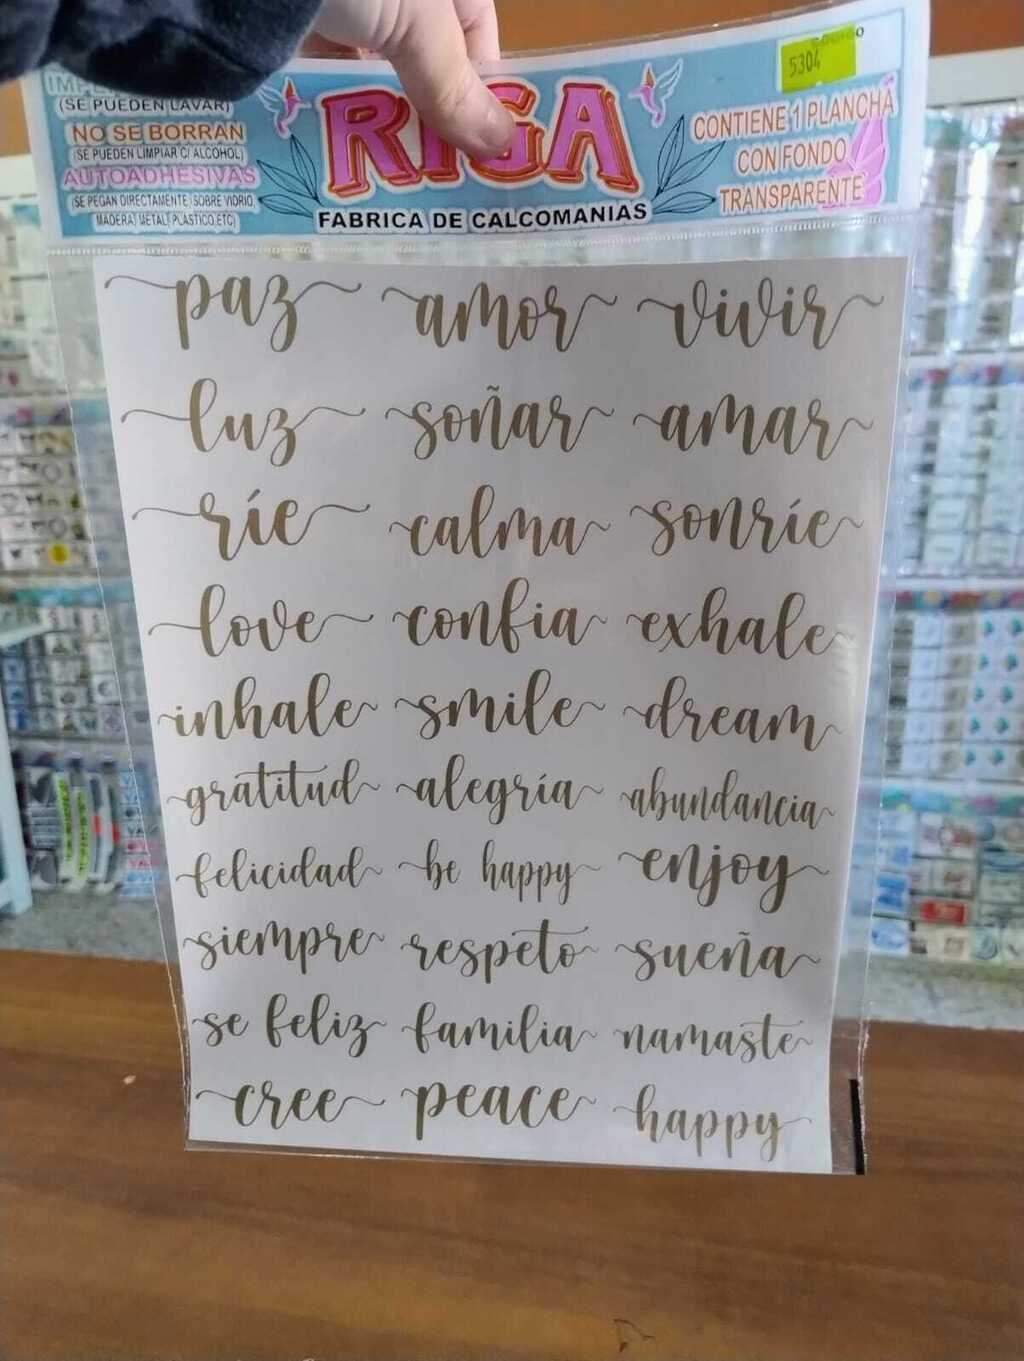 (SE PUEDEN LAVAR)
NO SE BORRAN
(SE PUEDEN LIMPIAR C/ ALCOHOL)
AUTOADHESIVAS
(SE PEGAN DIRECTAMENTE SOBRE VIDRIO,
MADERA, METAL, PLASTICO, ETC)
RIGA
FABRICA DE CALCOMANIAS
5304
CONTIENE 1 PLANCHA
CON FONDO
TRANSPARENTE
paz amor vivir
luz soñar amar
ríe calma sonríe
love confia exhale
inhale smile dream
gratitud alegría abundancia
felicidad be happy enjoy
siempre respeto sueña
se feliz familia namaste
cree peace happy